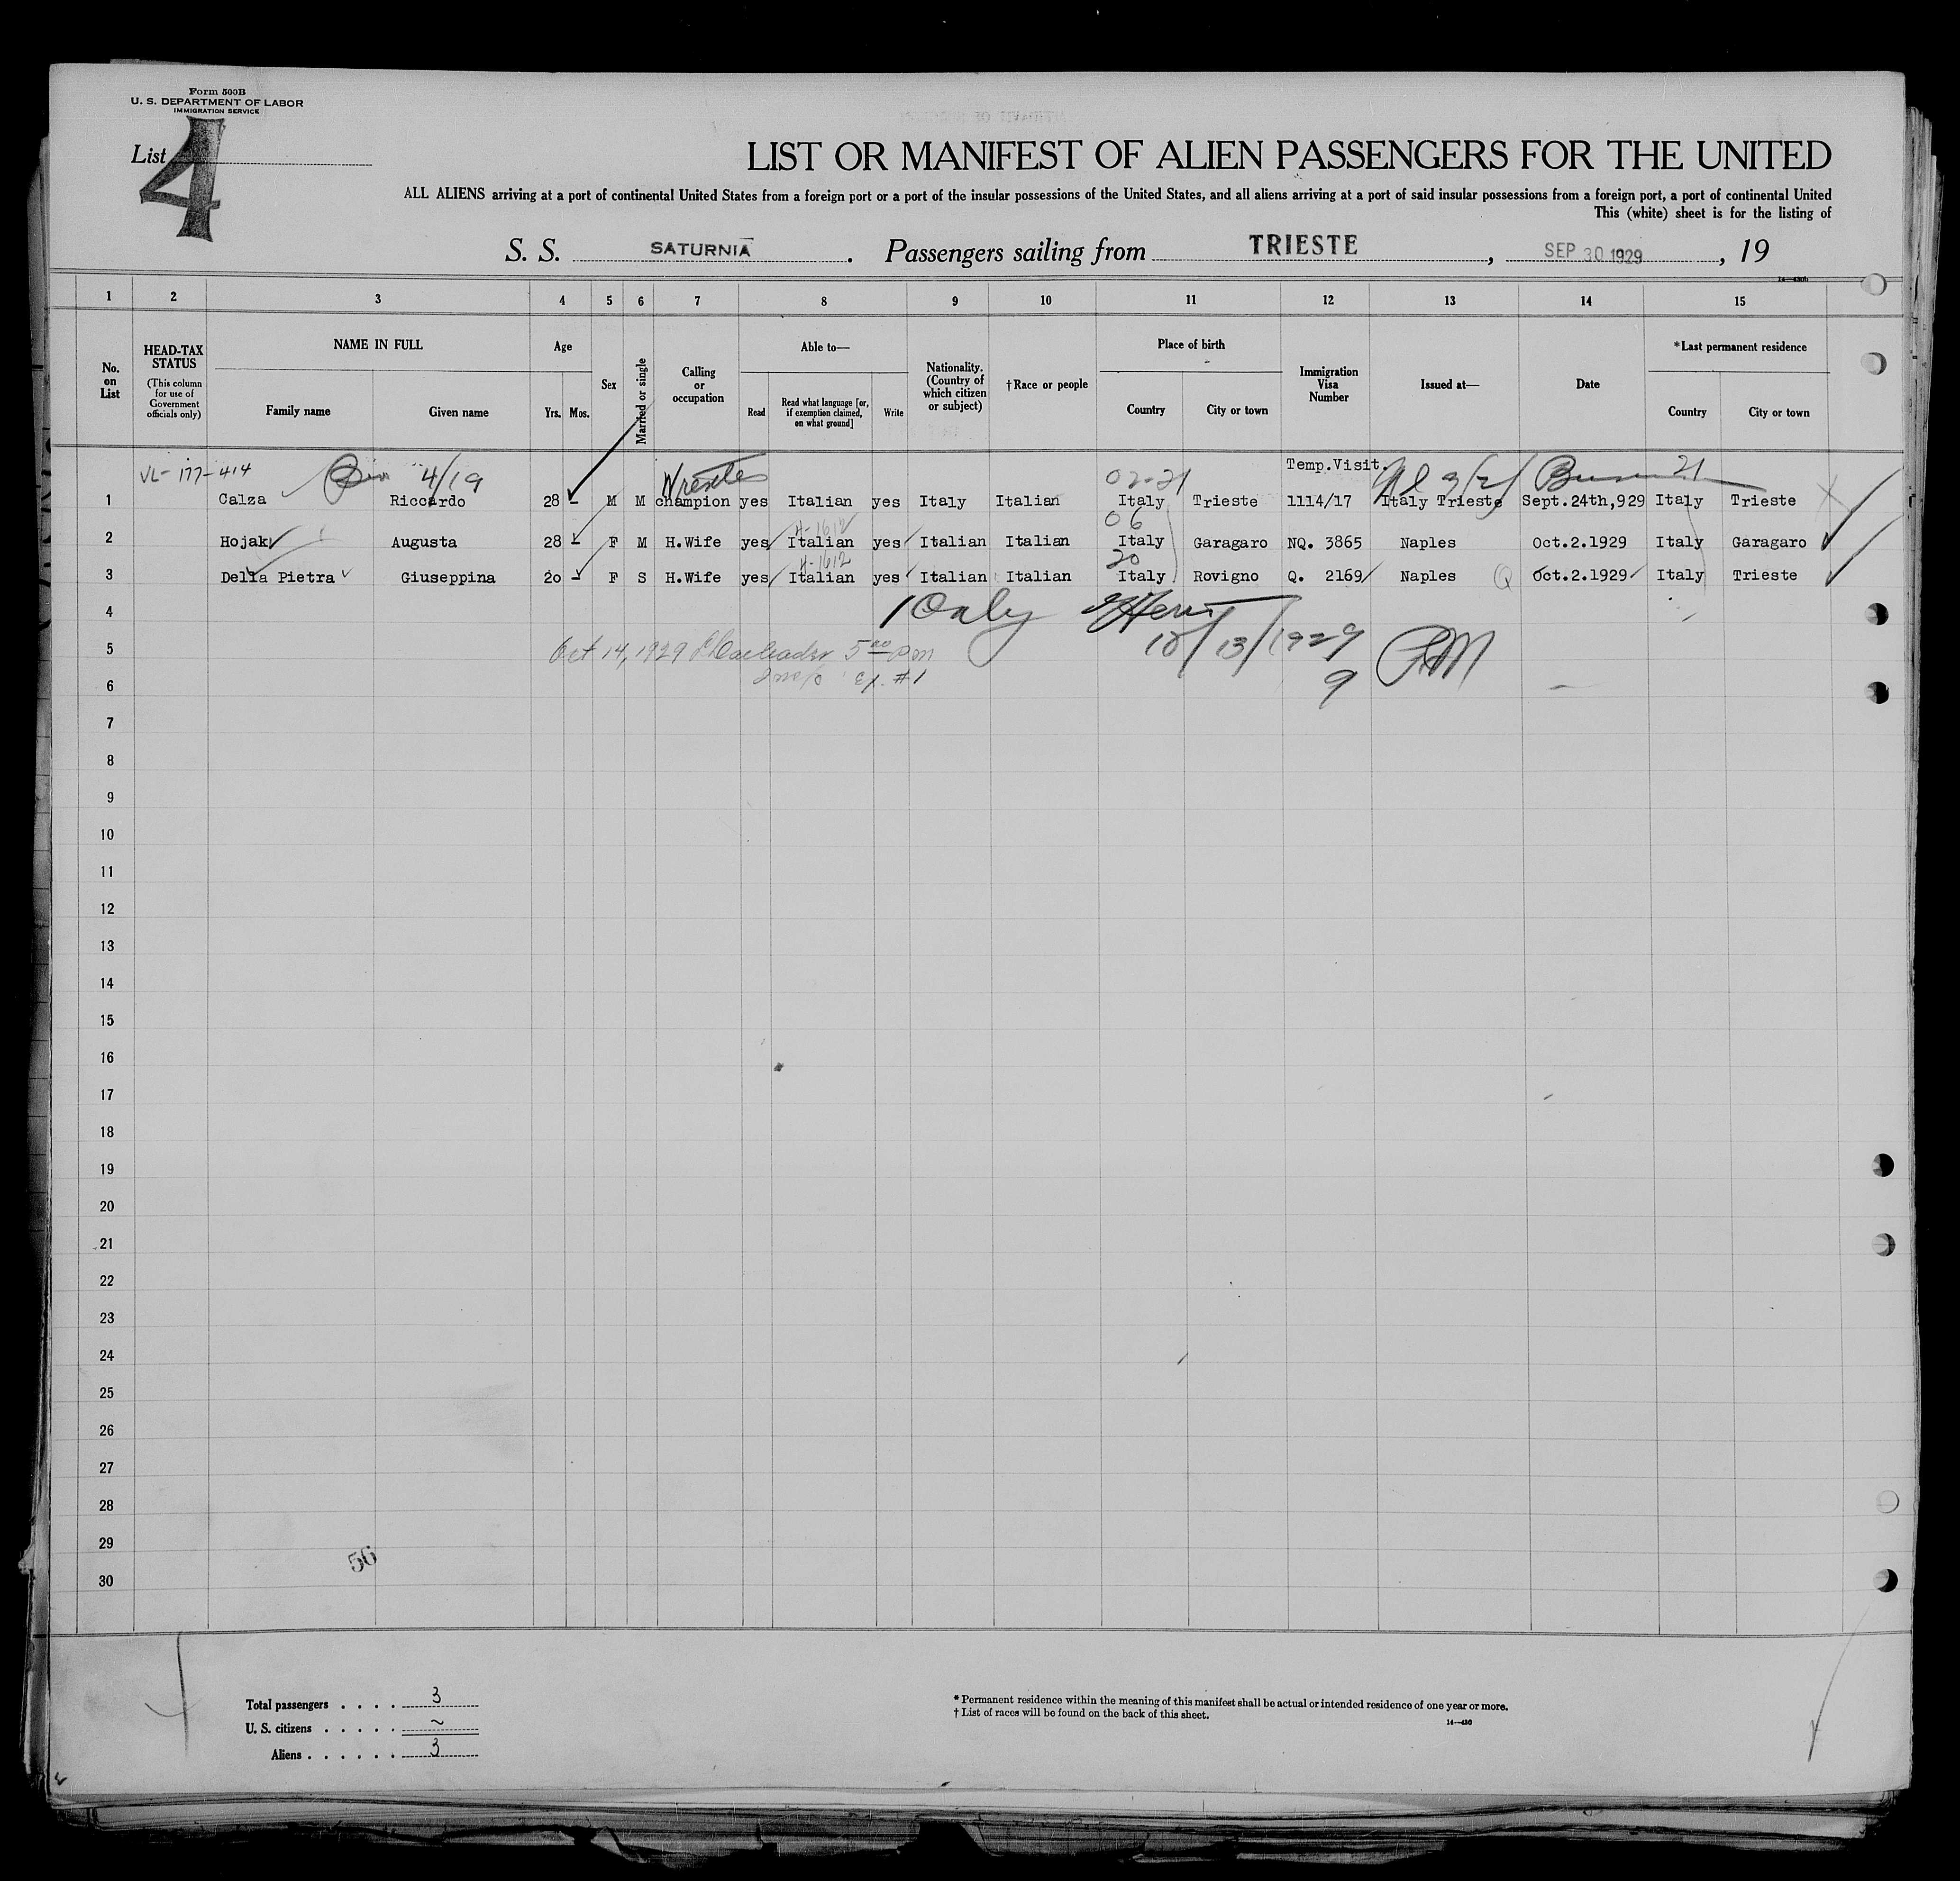 Form 500B
U. S. DEPARTMENT OF LABOR
IMMIGRATION SERVICE
List 4
LIST OR MANIFEST OF ALIEN PASSENGERS FOR THE UNITED
ALL ALIENS arriving at a port of continental United States from a foreign port or a port of the insular possessions of the United States, and all aliens arriving at a port of said insular possessions from a foreign port, a port of continental United
This (white) sheet is for the listing of
S. S. SATURNIA. Passengers sailing from TRIESTE, SEP 30 1929, 19
14—430b
1 2 3 4 5 6 7 8 9 10 11 12 13 14 15
No. on List
HEAD-TAX STATUS (This column for use of Government officials only)
NAME IN FULL
Family name
Given name
Age
Yrs. Mos.
Sex
Married or single
Calling or occupation
Able to—
Read
Read what language [or, if exemption claimed, on what ground]
Write
Nationality. (Country of which citizen or subject)
†Race or people
Place of birth
Country
City or town
Immigration Visa Number
Issued at—
Date
*Last permanent residence
Country
City or town
VL- 177-414 4/19 Wrestler 02-21 Temp.Visit. 21
1 Calza Riccardo 28 - M M champion yes Italian yes Italy Italian Italy Trieste 1114/17 Italy Trieste Sept.24th,929 Italy Trieste
H-1612 06
2 Hojak Augusta 28 - F M H.Wife yes Italian yes Italian Italian Italy Garagaro NQ. 3865 Naples Oct.2.1929 Italy Garagaro
H-1612 20
3 Della Pietra Giuseppina 2o - F S H.Wife yes Italian yes Italian Italian Italy Rovigno Q. 2169 Naples Q Oct.2.1929 Italy Trieste
4 1 Only
5 Oct 14, 1929 5 00 pm 10/13/1929
6 Ex. #1 9
7
8
9
10
11
12
13
14
15
16
17
18
19
20
21
22
23
24
25
26
27
28
29
56
30
Total passengers . . . . 3
U. S. citizens . . . . . ~
Aliens . . . . . . 3
* Permanent residence within the meaning of this manifest shall be actual or intended residence of one year or more.
† List of races will be found on the back of this sheet.
14—430